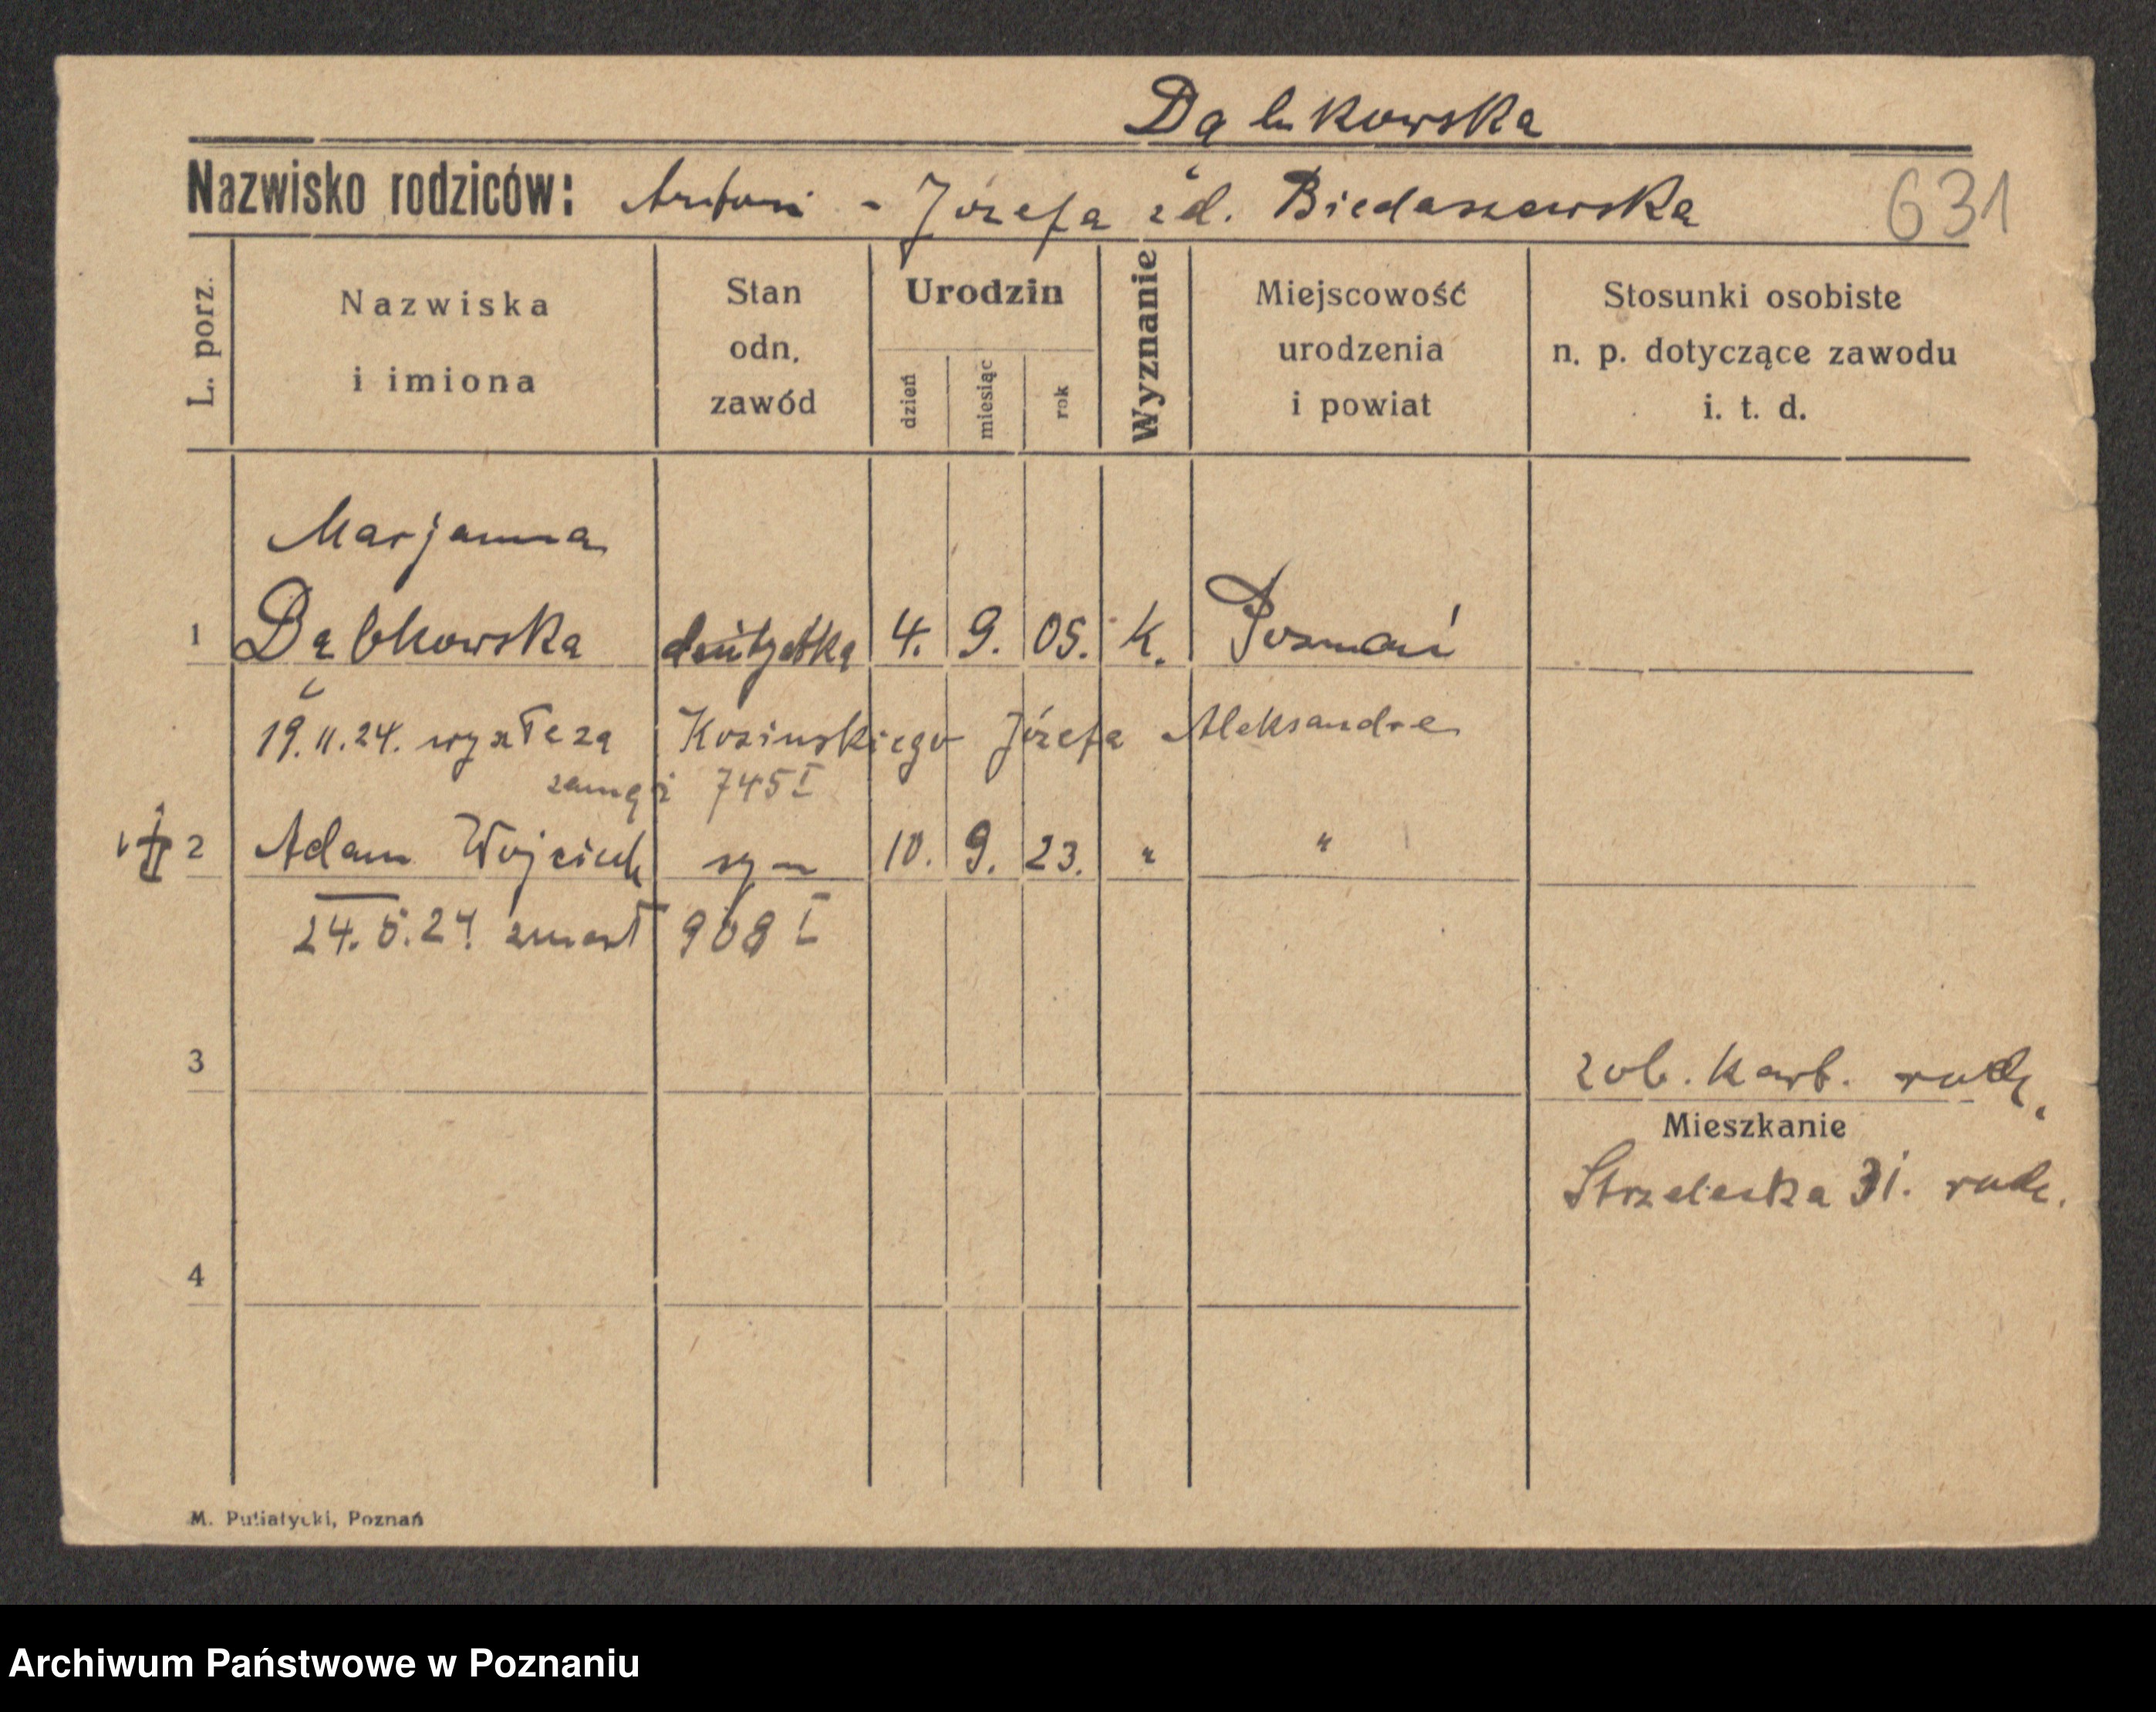 Dąbkowska
Nazwisko rodziców: Antoni - Józefa zd. Biedaszewska 631
L. porz.
Nazwiska
i imiona
Stan
odn.
zawód
Urodzin
dzień
miesiąc
rok
Wyznanie
Miejscowość
urodzenia
i powiat
Stosunki osobiste
n. p. dotyczące zawodu
i. t. d.
Marjanna
1 Dąbkowska 4. 9. 05. K. Poznań
19.11.24. wyszła za Kosinskiego Józefa Aleksandra
zamąż 745 I
2 Adam Wojciech syn 10. 9. 23. " "
24.5.24 zmarł 908 I
3
zob. kart. rodz.
Mieszkanie
Strzelecka 31. rodz.
4
M. Putiatycki, Poznań
Archiwum Państwowe w Poznaniu